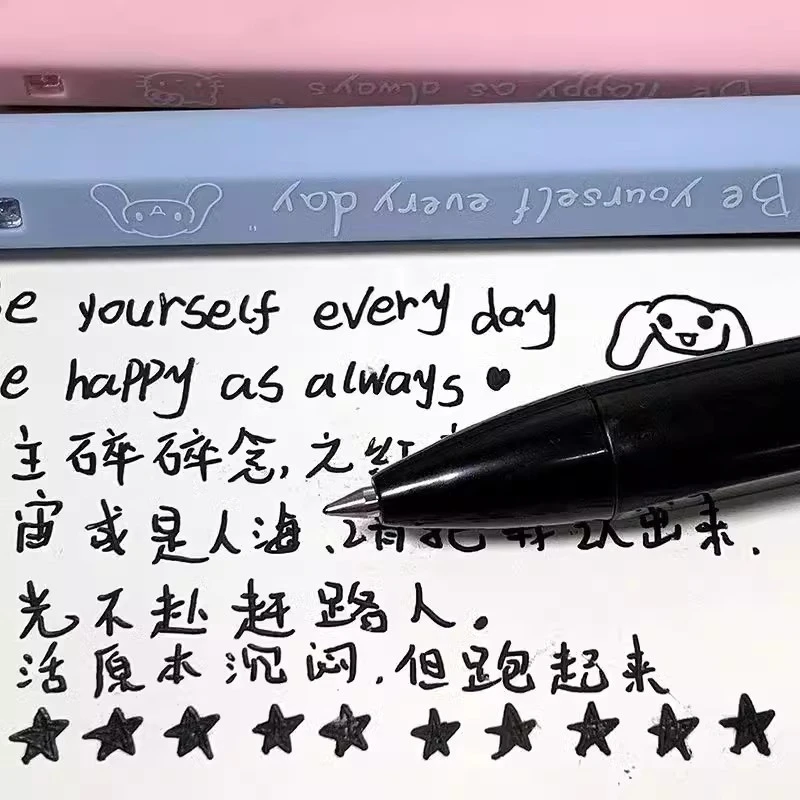 Be happy as always
Be yourself every day
Be yourself every day
e happy as always
主碎碎念,之红
宙或是人海,请把我认出来.
光不赴赶路人。
活原本沉闷,但跑起来